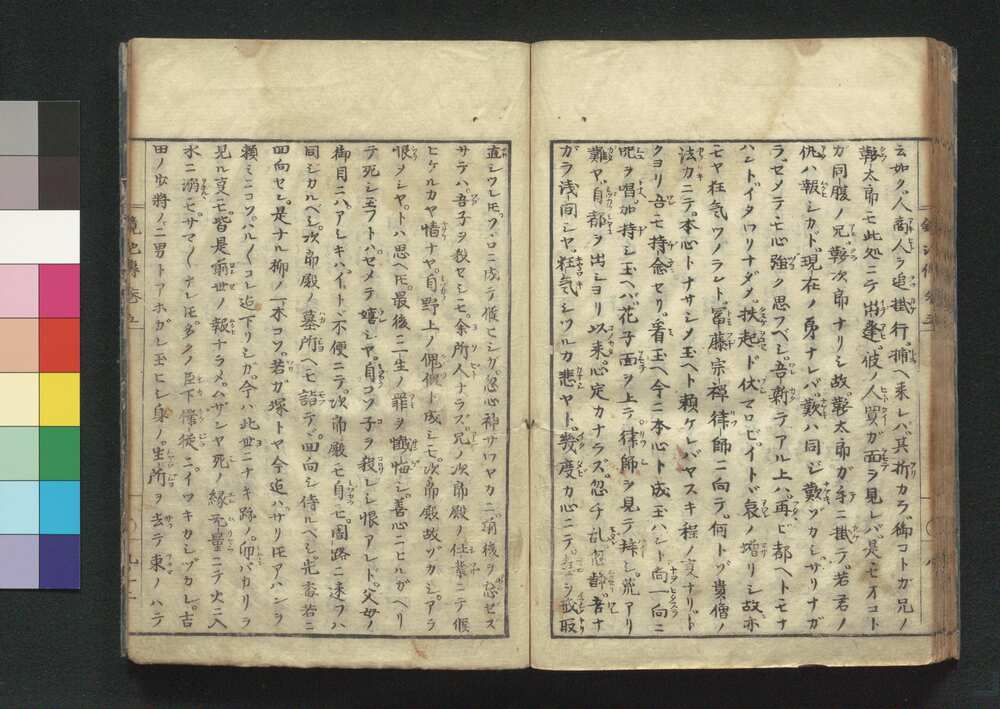 云如ク人商人ヲ追掛行捕ヘ来レバ其折カラ御コトガ兄ノ
難太郎モ此処ニテ出逢彼ノ人買ガ面ヲ見レバ是モオコト
ガ同腹ノ兄 次郎ナリシ故 太郎ガ手ニ掛テ若君ノ
仇ハ報シカド現在ノ弟ナレバ歎ハ同ジ歎ヅカシザリナガ
ラセメテモ心強ク思フベシ吾斯テアル上ハ再ビ都ヘトモナ
ハントイタワリナダメ扶起ド伏マロビイトド哀ノ増リシ故亦
モヤ狂気ワノラント冨藤宗禅律師ニ向テ何トゾ貴僧ノ
法カニテ本心トナサシメ玉ヘト頼ケレバヤスキ程ノ夏ナリト
クヨリ吾モ持念セリ看玉ヘ今ニ本心ト成玉ハント尚一向ニ
呪ヲ唱加持シ玉ヘバ花子面ヲ上テ律師ヲ見テ拝シ荒アリ
難ヤ自都ヲ出シヨリ以来心定カナラズ忽チ 忽酔吾ナ
ガラ浅間シヤ狂気シツルカ悲ヤト幾度カ心ニテ
直シツレ圧フロニ成テ候ヒシガ忽心神サワヤカニ
サテハ吾子ヲ殺セシモ余所人ナラズ兄ノ次郎殿ノ仕業ニテ候
ヒケルカヤ情ナヤ自野上ノ傀儡ト成シモ次郎殿故ヅカシアラ
恨ヲシヤトハ思ヘ圧最後ニ一生ノ罪ヲ懺悔シ善心ニヒルガヘリ
テ死シ玉フトハセメテ嬉シヤ自コソ子ヲ殺レシ恨アレド父母ノ
御目ニハアシキハイトド不便ニテ次郎殿モ自モ闇路ニ迷フハ
同シカルベシ次郎殿ノ墓所ヘモ詣デ回向シ侍ルベシ
回向セン是ナル柳ノ一本コソ若ガ塚トヤ今迫ハサリ圧アハンヲ
頼ミニコソハル〱コレ迄下リシガ今ハ此世ニナキ跡ノ バカリヲ
見ル夏モ皆是前世ノ報ナラメハザンヤ死ノ縁無量ニテ火ニ入
水ニ溺モサマ〱ナレ圧多クノ臣下僕従ニイツキカシヅカレ吉
田ノ少将ノ二男トアホガレ玉ヒシ身ノ生所ヲ去テ東ノハテ